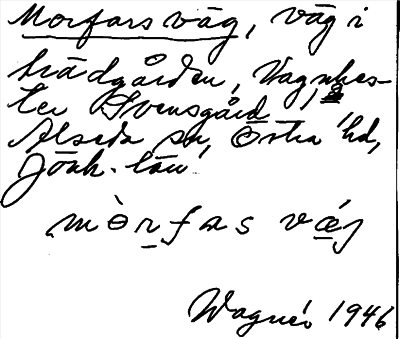 Morfars väg, väg i
trädgården, Vagnhes-
ter Svensgård,
Alseda sn, Östra hd,
Jönk. län.
mòrfas vǽ̣g
Wagnér 1946